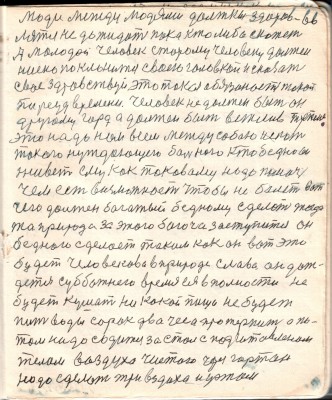 Люди между людями должны здоров-ва
лятя не дожидят пока кто либо скажет
А молодой человек старому человеку должен
низко поклонитя своею головкой и сказат
свое здравствуй Это така обязаност такой
перед времени. Человек не должен быт он
другому горд а должен быт вежлив
Это надо нам всем между собою искат
такого нуждающего бедного Кто бедно он
живет Ему как таковому надо помоч
Чем ест возможност Чтобы не болет вот
чего должен богатый бедному сделат тогда
природа за этого богоча заступится он
бедного сделает таким как он вот это
будет человекова в природе слава он дож-
детя субботнего время ея в полности не
будет кушат ни какой пищи не будет
пит воды сорок два часа протерпит а по-
том надо садитя за стол с подготовленым
телом воздуха чистого чрз гортан
надо сделат три вздоха и узтом